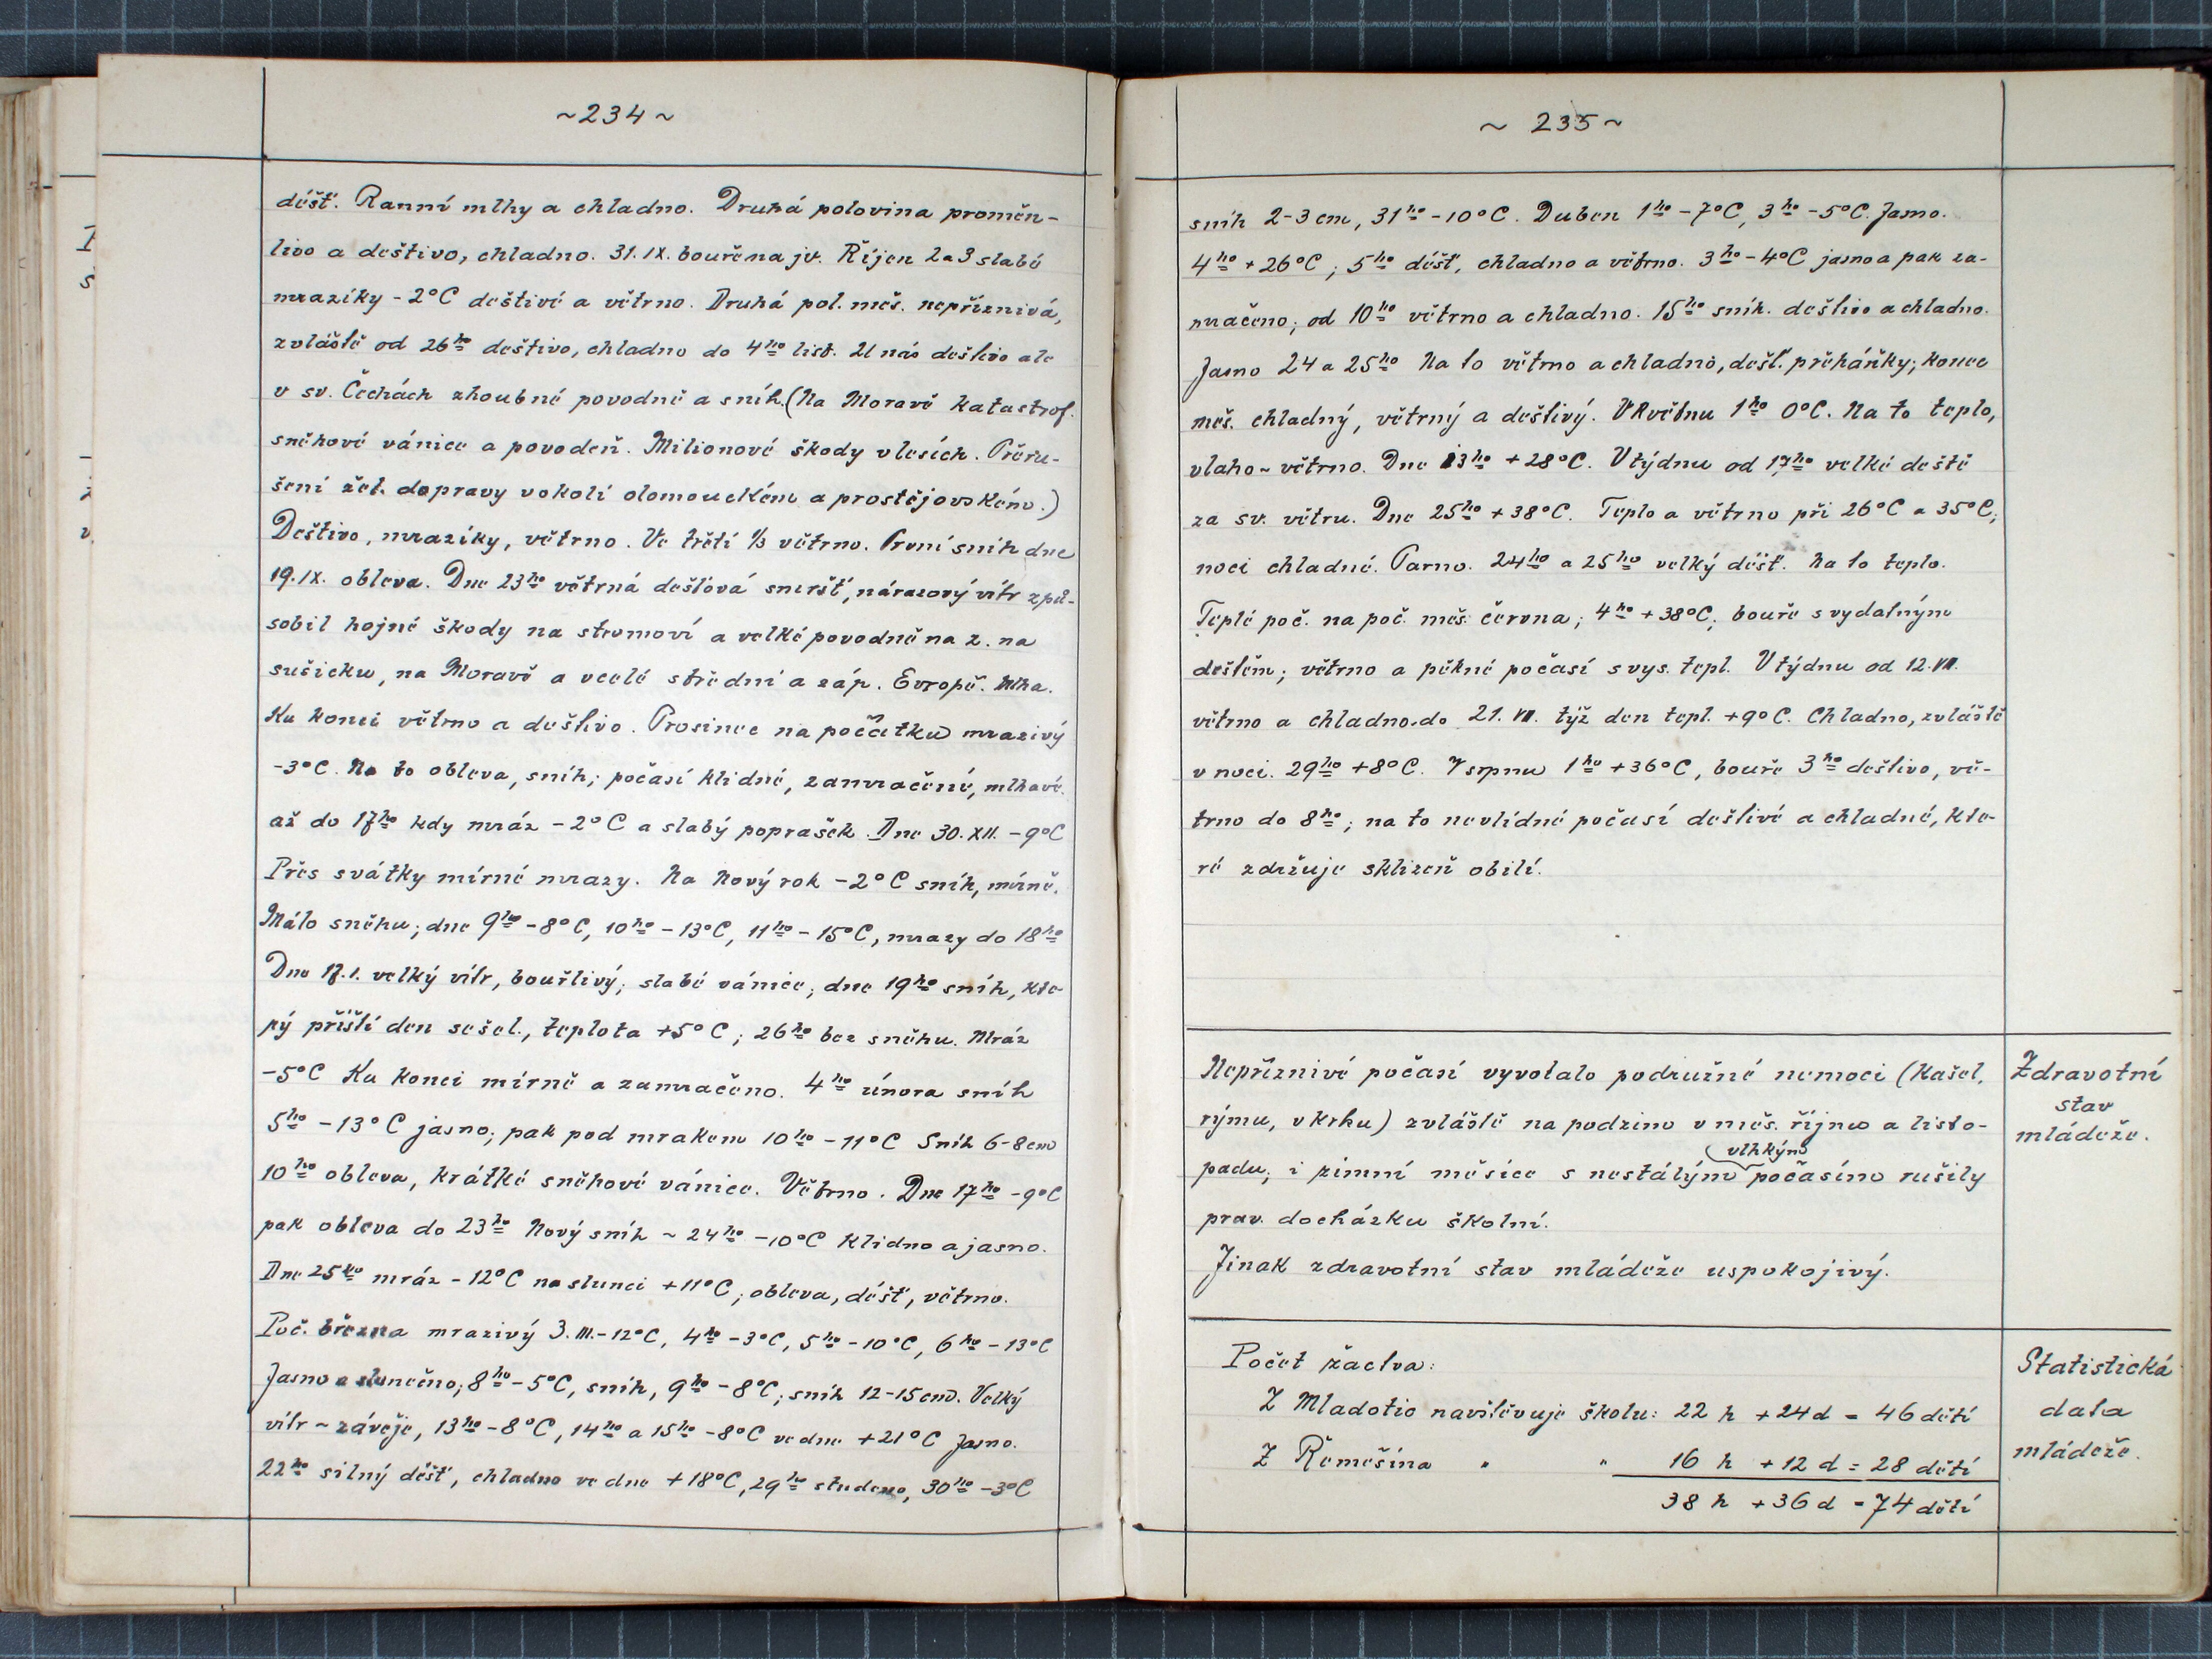 ~234~
déšť. Ranní mlhy a chladno. Druhá polovina proměn-
livo a deštivo, chladno. 31. IX. bouře na jv. Říjen 2 a 3 slabé
mrazíky -2°C deštivé a větrno. Druhá pol. měs. nepříznivá,
zvláště od 26ho deštivo, chladno do 4ho list. U nás deštivo ale
v sv. Čechách zhoubné povodně a sníh. (Na Moravě katastrof.
sněhové vánice a povodeň. Milionové škody v lesích. Přeru-
šení žel. dopravy v okolí olomouckém a prostějovském.)
Deštivo, mrazíky, větrno. Ve třetí ⅓ větrno. První sníh dne
19. IX. obleva. Dne 23ho větrná dešťová smršť, nárazový vítr způ-
sobil hojné škody na stromoví a velké povodně na z. na
sušicku, na Moravě a v celé střední a záp. Evropě. Mlha.
Ku konci větrno a deštivo. Prosinec na počátku mrazivý
-3°C. Na to obleva, sníh; počasí klidné, zamračené, mlhavé.
až do 17ho kdy mráz -2°C a slabý poprašek. Dne 30. XII. -9°C
Přes svátky mírné mrazy. Na Nový rok -2°C sníh, mírně.
Málo sněhu; dne 9ho -8°C, 10ho -13°C, 11ho -15°C, mrazy do 18ho
Dne 17. 1. velký vítr, bouřlivý; slabé vánice; dne 19ho sníh, kte-
rý příští den sešel., teplota +5°C; 26ho bez sněhu. Mráz
-5°C Ku konci mírně a zamračeno. 4ho února sníh
5ho -13°C jasno; pak pod mrakem 10ho -11°C Sníh 6-8 cm
10ho obleva, krátké sněhové vánice. Větrno. Dne 17ho -9°C
pak obleva do 23ho Nový sníh ~ 24ho -10°C klidno a jasno.
Dne 25ho mráz -12°C na slunci +11°C; obleva, déšť, větrno.
Poč. března mrazivý 3. III. -12°C, 4ho -3°C, 5ho -10°C, 6ho -13°C
Jasno a slunečno; 8ho -5°C, sníh, 9ho -8°C; sníh 12-15 cm. Velký
vítr ~ závěje, 13ho -8°C, 14ho a 15ho -8°C ve dne +21°C Jasno.
22ho silný déšť, chladno ve dne +18°C, 29ho studeno, 30ho -3°C
~ 235 ~
sníh 2-3 cm, 31ho -10°C. Duben 1ho -7°C, 3ho -5°C. Jasno.
4ho +26°C; 5ho déšť, chladno a větrno. 3ho -4°C jasno a pak za-
mračeno; od 10ho větrno a chladno. 15ho sníh. deštivo a chladno.
Jasno 24 a 25ho Na to větrno a chladno, dešť. přeháňky; konec
měs. chladný, větrný a deštivý. V Květnu 1ho 0°C. Na to teplo,
vlaho ~ větrno. Dne 13ho +28°C. V týdnu od 17ho velké deště
za sv. větru. Dne 25ho +38°C. Teplo a větrno při 26°C a 35°C;
noci chladné. Parno. 24ho a 25ho velký déšť. Na to teplo.
Teplé poč. na poč. měs. června; 4ho +38°C; bouře s vydatným
deštěm; větrno a pěkné počasí s vys. tepl. V týdnu od 12. VII.
větrno a chladno. do 21. VII. týž den tepl. +9°C. Chladno, zvláště
v noci. 29ho +8°C. V srpnu 1ho +36°C, bouře 3ho deštivo, vě-
trno do 8ho; na to nevlídné počasí deštivé a chladné, kte-
ré zdržuje sklizeň obilí.
Nepříznivé počasí vyvolalo podružné nemoci (kašel,
rýmu, v krku) zvláště na podzim v měs. říjnu a listo-
vlhkým
padu; i zimní měsíce s nestálým počasím rušily
prav. docházku školní.
Jinak zdravotní stav mládeže uspokojivý.
Zdravotní
stav
mládeže.
Počet žactva:
Z Mladotic navštěvuje školu: 22 h + 24 d = 46 dětí
Z Řemešína " " 16 h + 12 d = 28 dětí
38 h + 36 d = 74 dětí
Statistická
data
mládeže.